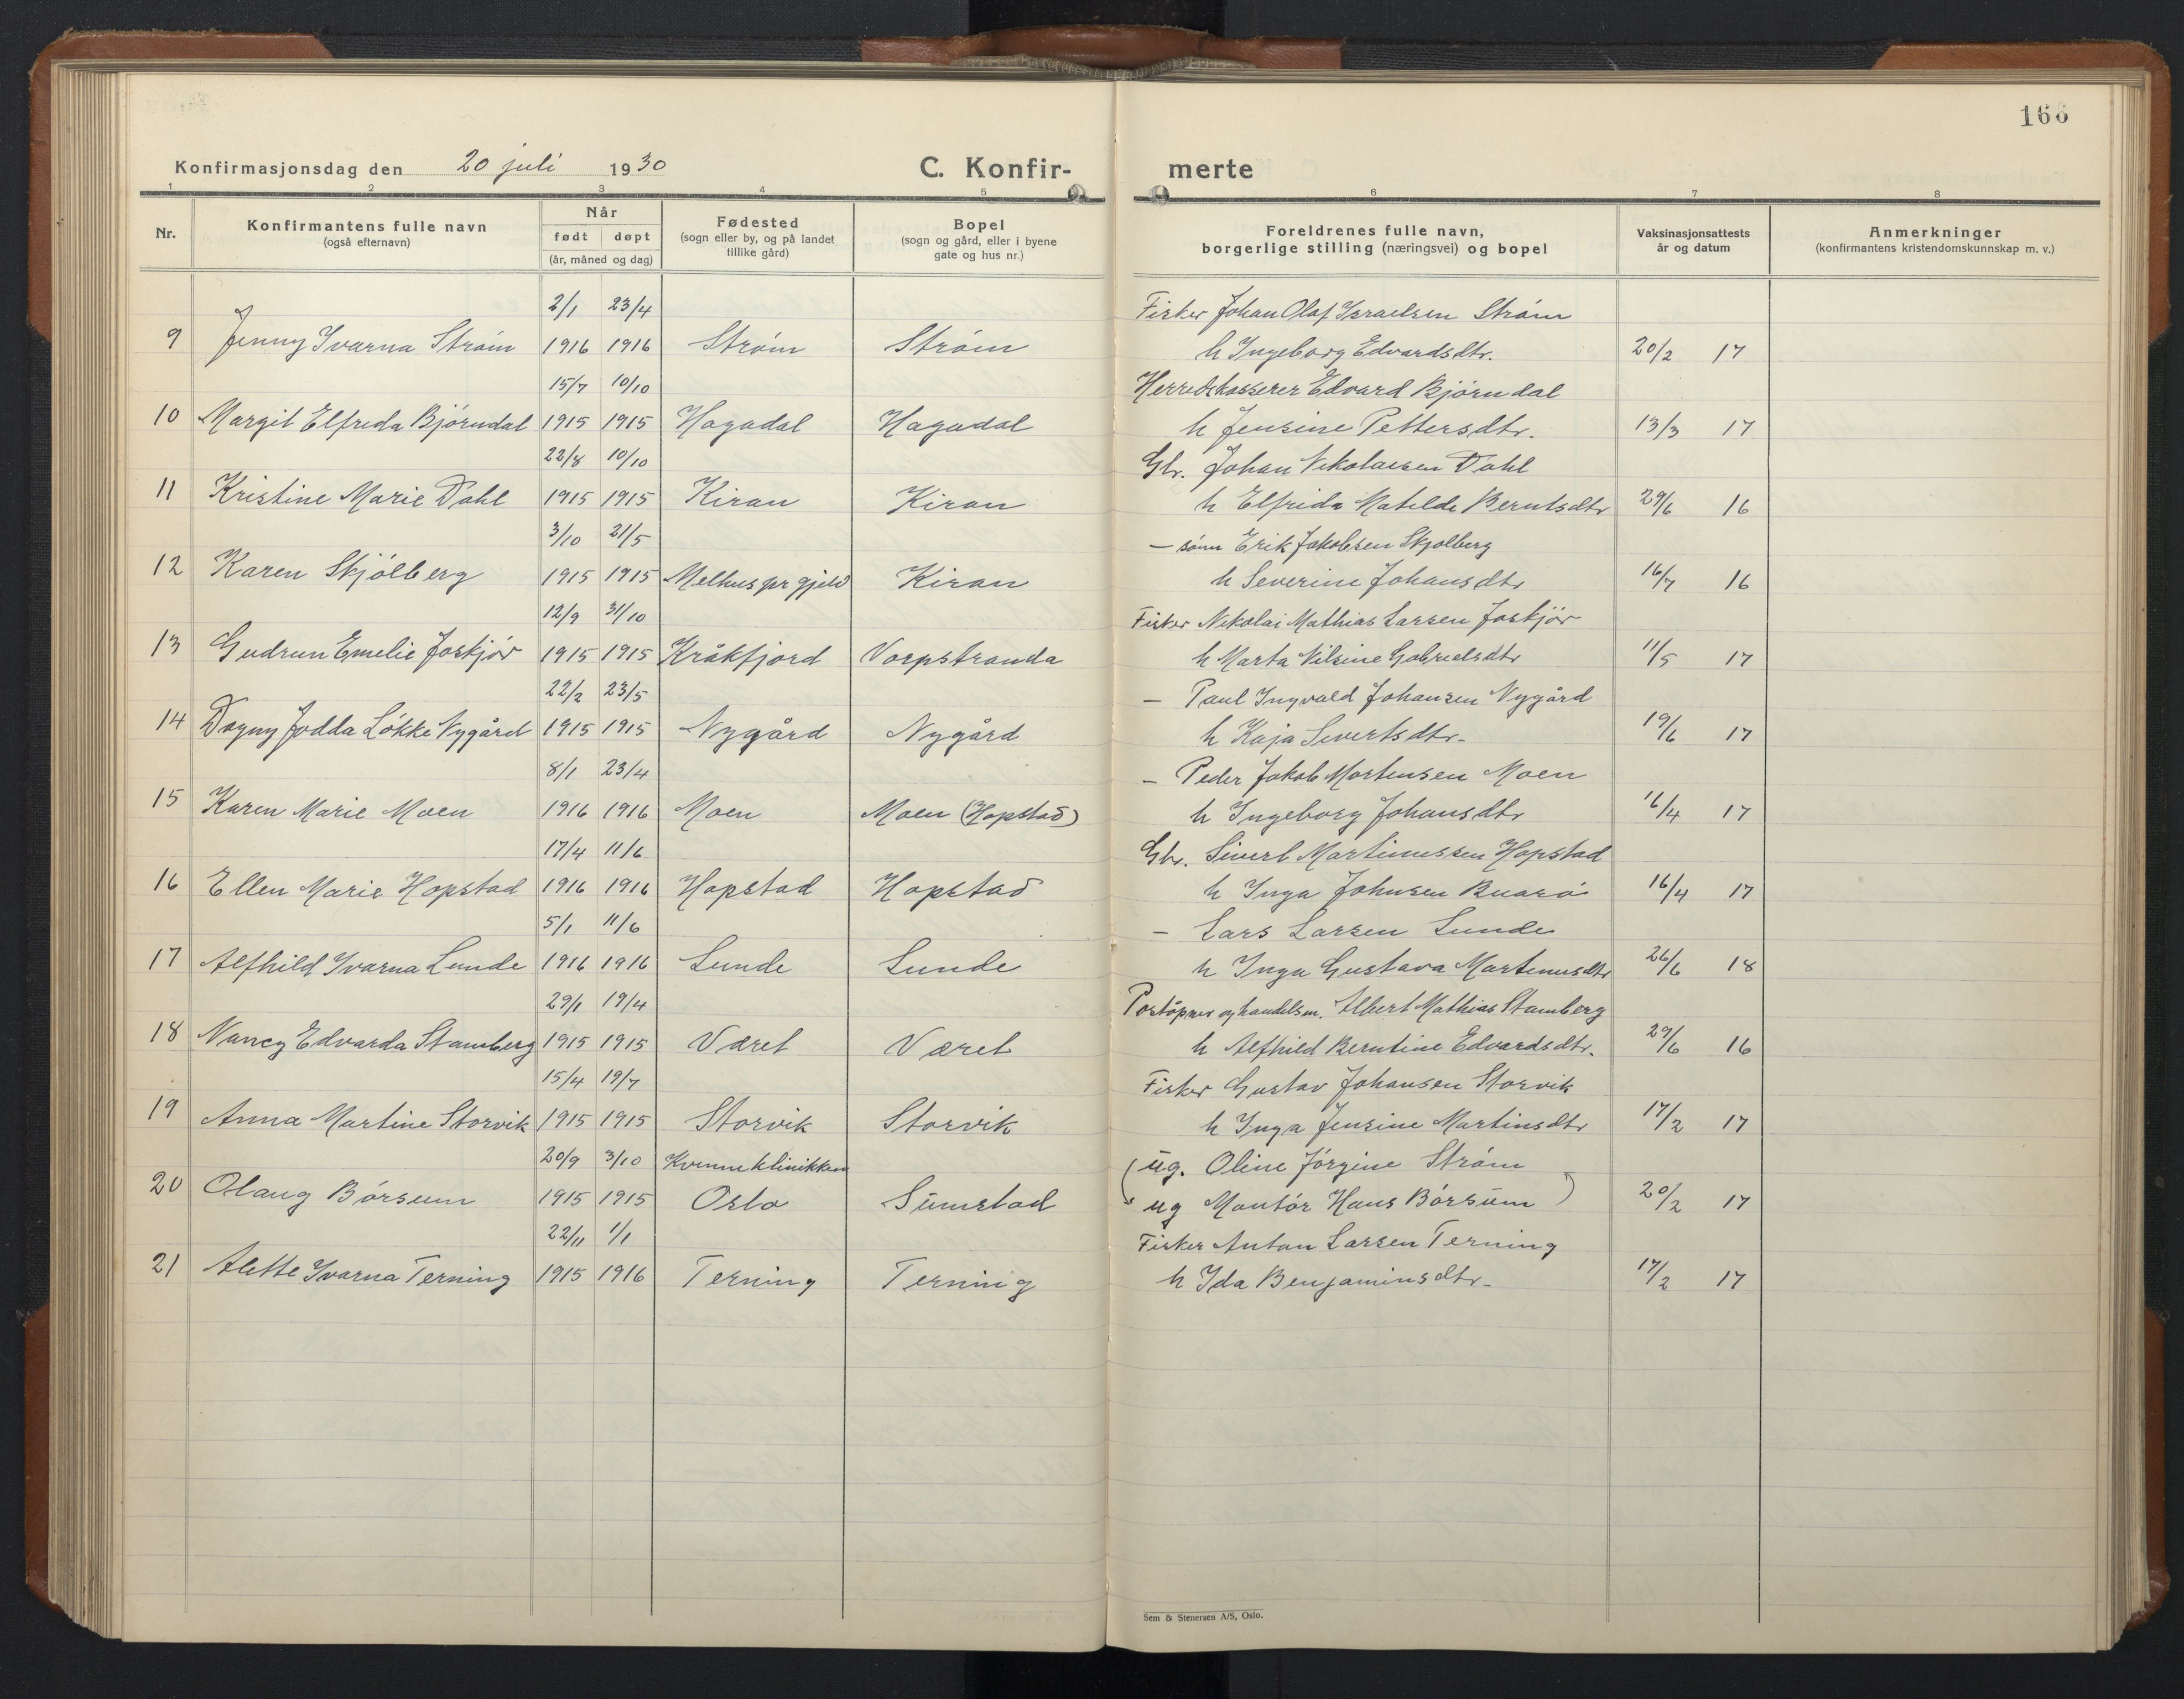 166
Konfirmasjonsdag den 20 juli 1930
C. Konfir- merte
1 2 3 4 5 6 7 8
Nr. Konfirmantens fulle navn (også efternavn) Når født døpt (år, måned og dag) Fødested (sogn eller by, og på landet tillike gård) Bopel (sogn og gård, eller i byene gate og hus nr.) Foreldrenes fulle navn, borgerlige stilling (næringsvei) og bopel Vaksinasjonsattests år og datum Anmerkninger (konfirmantens kristendomskunnskap m. v.)
2/1 23/4 Fisker Johan Olaf Israelsen Strøm
9 Jenny Ivarna Strøm 1916 1916 Strøm Strøm h Ingeborg Edvardsdtr. 20/2 17
15/7 10/10 Herredskasserer Edvard Bjørndal
10 Margit Elfreda Bjørndal 1915 1915 Hagadal Hagadal h Jensine Pettersdtr. 13/3 17
22/8 10/10 Gbr. Johan Nikolaisen Dahl
11 Kristine Marie Dahl 1915 1915 Kiran Kiran h Elfrida Matilde Berntsdtr 29/6 16
3/10 21/5 — sønn Erik Jakobsen Skjølberg
12 Karen Skjølberg 1915 1915 Melhus prgjeld Kiran h Severine Johansdtr 16/7 16
12/9 31/10 Fisker Nikolai Mathias Larsen Foskjør
13 Gudrun Emelie Foskjør 1915 1915 Kråkfjord Vorpstranda h Marta Nilsine Gabrielsdtr 11/5 17
22/2 23/5 — Paul Ingvald Johansen Nygård
14 Dagny Jodda Løkke Nygård 1915 1915 Nygård Nygård h Kaja Sivertsdtr- 19/6 17
8/1 23/4 — Peder Jakob Mortensen Moen
15 Karen Marie Moen 1916 1916 Moen Moen (Hopstad) h Ingeborg Johansdtr 16/4 17
17/4 11/6 Gbr. Sivert Martinussen Hopstad
16 Ellen Marie Hopstad 1916 1916 Hopstad Hopstad h Inga Johnsen Buarø 16/4 17
5/1 11/6 — Lars Larsen Lunde
17 Alfhild Ivarna Lunde 1916 1916 Lunde Lunde h Inga Gustava Martinusdtr 26/6 18
29/1 19/4 Postöpner og handelsm. Albert Mathias Stamberg
18 Nancy Edvarda Stamberg 1915 1915 Været Været h Alfhild Berntine Edvardsdtr. 29/6 16
15/4 19/7 Fisker Gustav Johansen Storvik
19 Anna Martine Storvik 1915 1915 Storvik Storvik h Inga Jensine Martinsdtr 17/2 17
20/9 3/10 Kvinneklinikken (ug. Oline Jørgine Strøm
20 Olaug Børsum 1915 1915 Oslo Sumstad ug Montør Hans Børsum) 20/2 17
22/11 1/1 Fisker Anton Larsen Terning
21 Alette Ivarna Terning 1915 1916 Terning Terning h Ida Benjaminsdtr- 17/2 17
Sem & Stenersen A/S, Oslo.